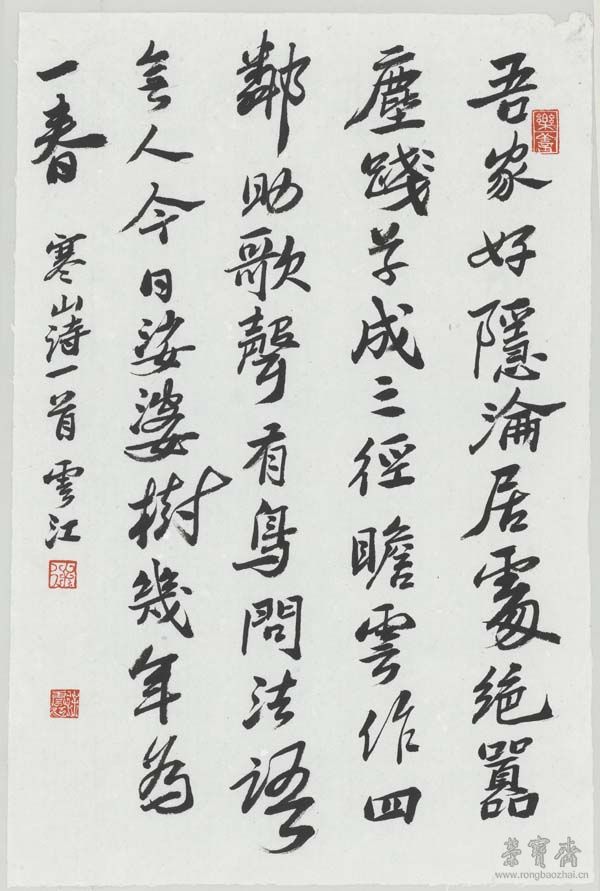 吾家好隱淪居處絕囂
塵踐草成三徑瞻雲作四
鄰助歌聲有鳥問法語
無人今日娑婆樹幾年為
一春
寒山詩一首 雲江
樂善
榮寶齋
www.rongbaozhai.cn